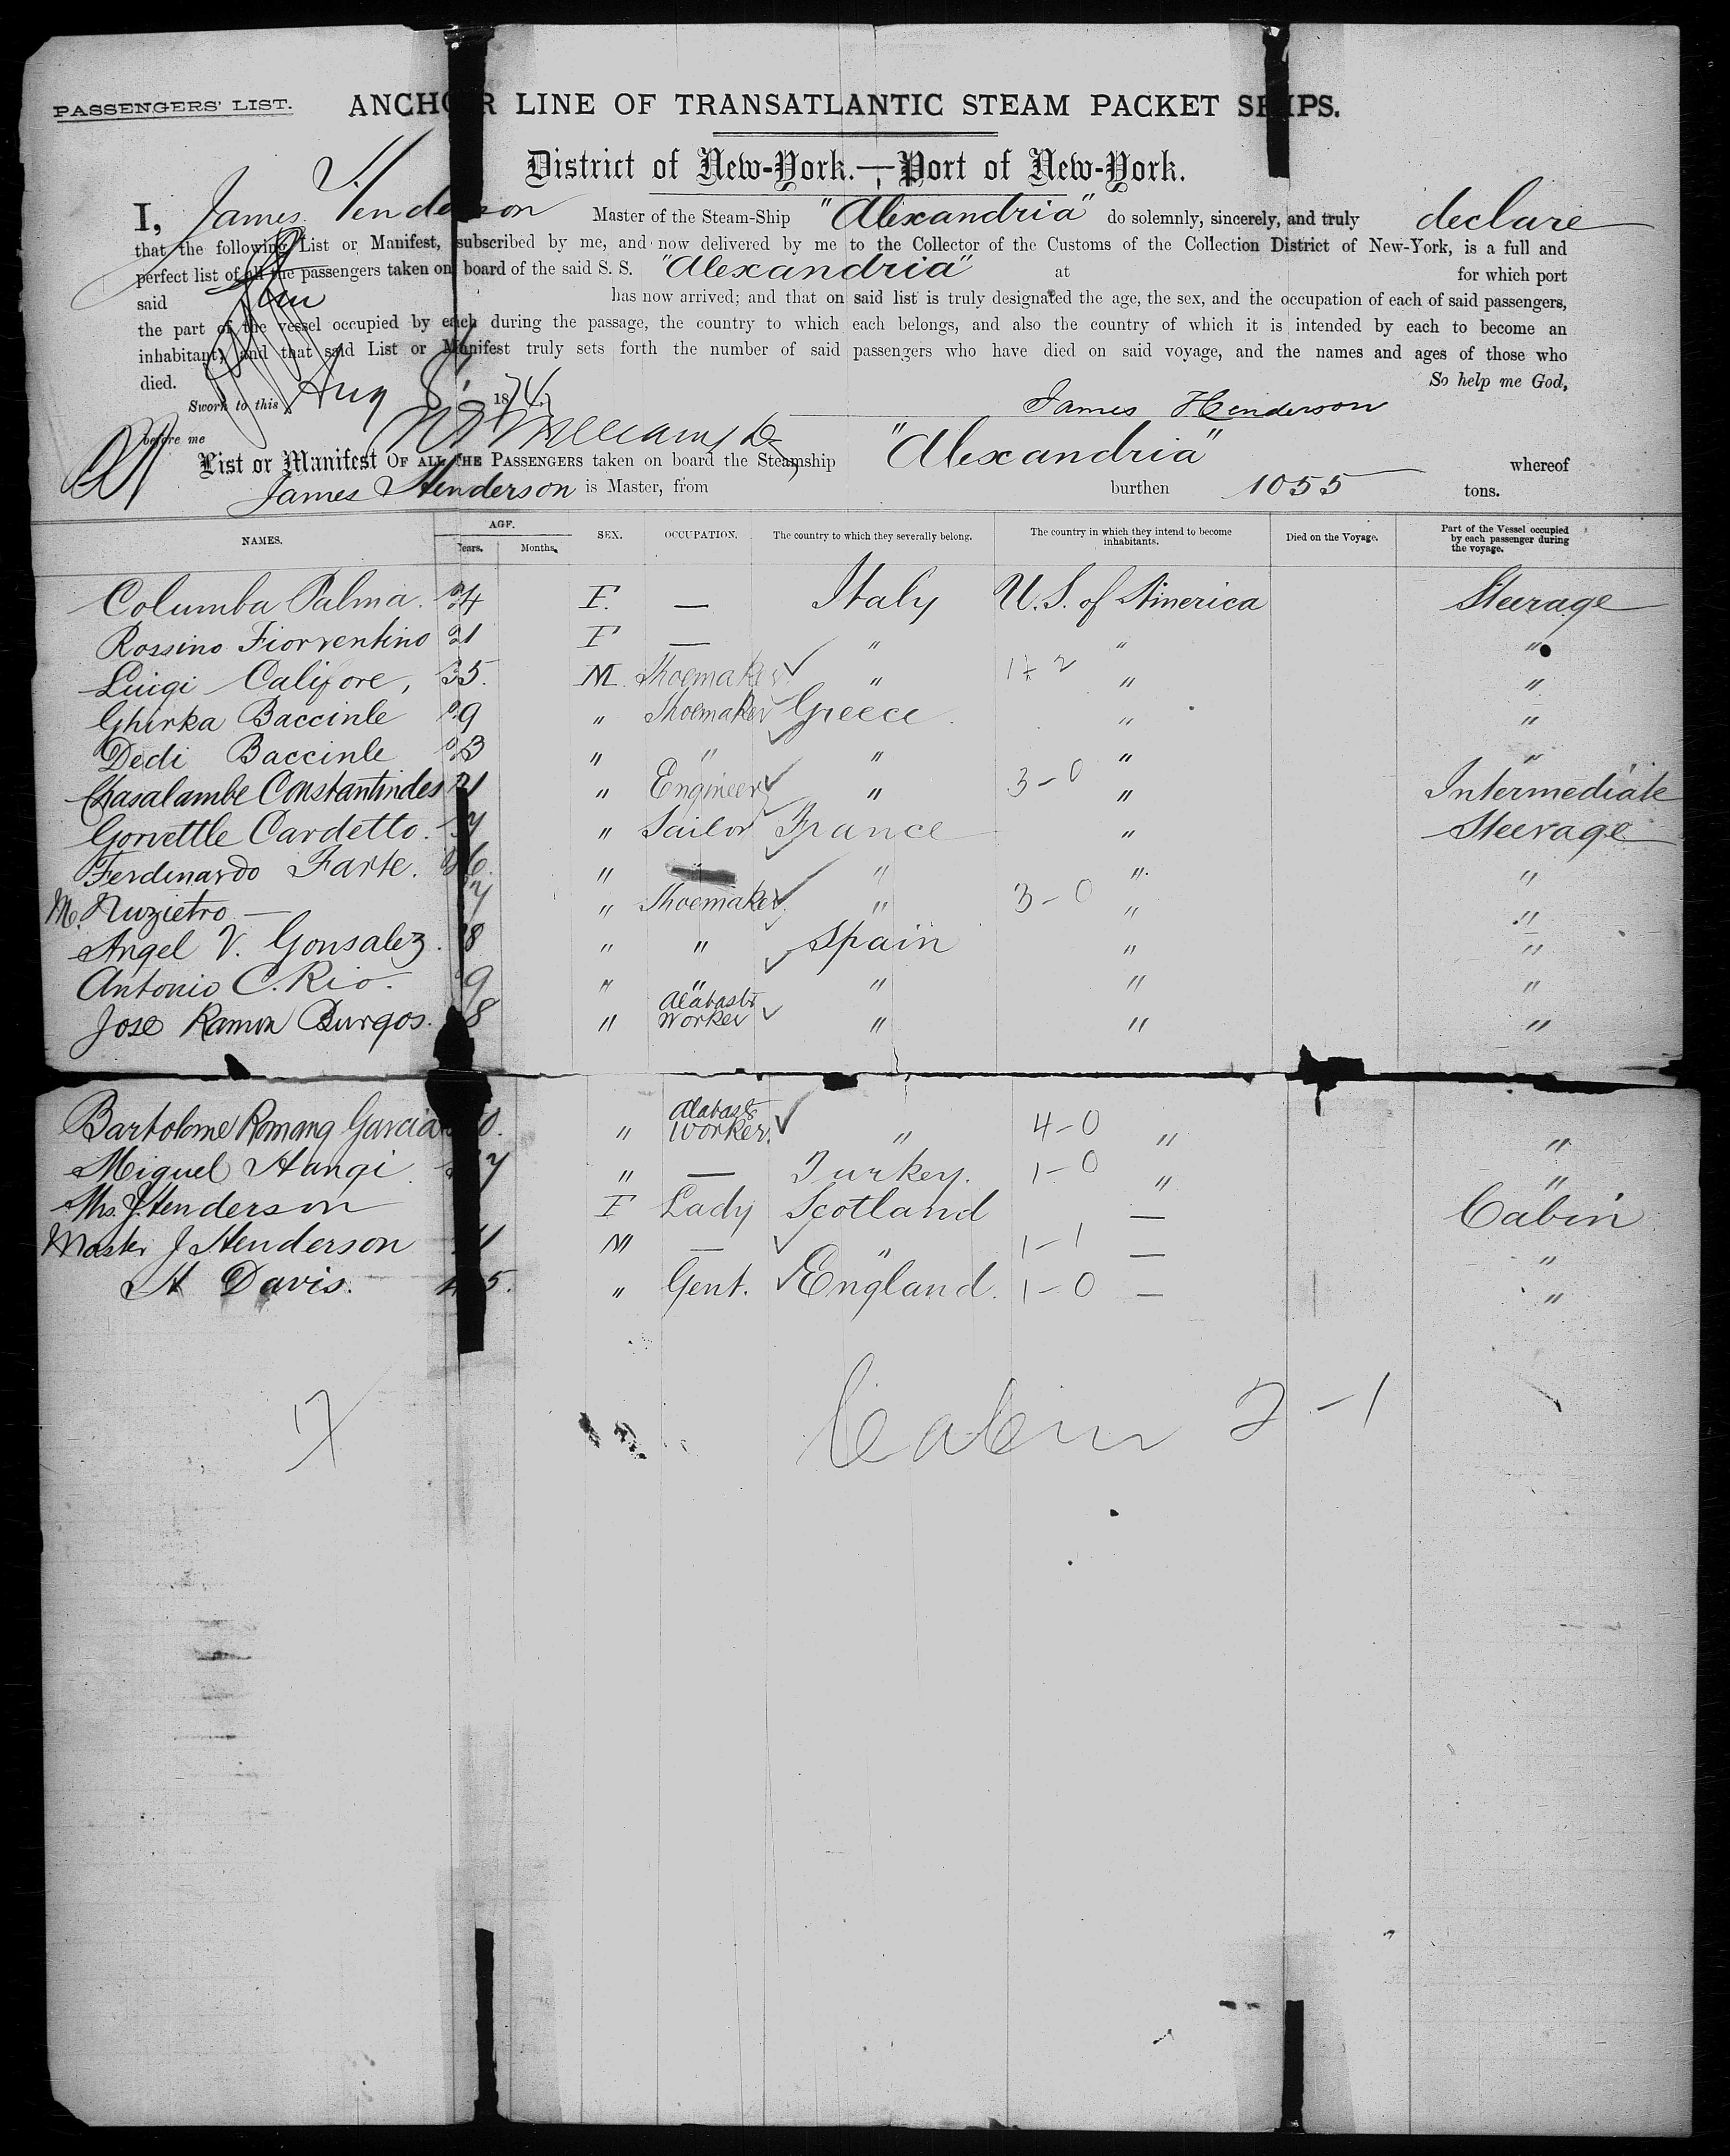 PASSENGERS' LIST. ANCHOR LINE OF TRANSATLANTIC STEAM PACKET SHIPS.
District of New-York.—Port of New-York.
I, James Henderson Master of the Steam-Ship "Alexandria" do solemnly, sincerely, and truly declare
that the following List or Manifest, subscribed by me, and now delivered by me to the Collector of the Customs of the Collection District of New-York, is a full and
perfect list of all the passengers taken on board of the said S. S. "Alexandria" at for which port
said has now arrived; and that on said list is truly designated the age, the sex, and the occupation of each of said passengers,
the part of the vessel occupied by each during the passage, the country to which each belongs, and also the country of which it is intended by each to become an
inhabitant; and that said List or Manifest truly sets forth the number of said passengers who have died on said voyage, and the names and ages of those who
died. So help me God,
Sworn to this Aug 8, 1874 James Henderson
before me
List or Manifest OF ALL THE PASSENGERS taken on board the Steamship "Alexandria" whereof
James Henderson is Master, from burthen 1055 tons.
NAMES. AGE. Years. Months. SEX. OCCUPATION. The country to which they severally belong. The country in which they intend to become inhabitants. Died on the Voyage. Part of the Vessel occupied by each passenger during the voyage.
Columba Palma. 24 F. — Italy U.S. of America Steerage
Rossino Fiorventino 21 F — " " "
Luigi Califore, 35. M. Shoemaker " 1 + 2 " "
Ghirka Baccinle 29 " Shoemaker Greece. " "
Dedi Baccinle 23 " " " " "
Chasalambe Constantindes 21 " Engineer " 3-0 " Intermediate
Gorvettle Cardetto. " Sailor France " Steerage
Ferdinardo Farte. " " " "
M. Nuzietro — " Shoemaker " 3-0 " "
Angel V. Gonsalez. 8 " " Spain " "
Antonio C. Rio. 9 " " " " "
Jose Ramon Burgos. 8 " Alabastr Worker " " "
Bartolome Romang Garcia 0. " Alabastr Worker. " 4-0 " "
Miguel Hangi. 7 " — Turkey. 1-0 " "
Mrs. J. Henderson F Lady Scotland — Cabin
Master J Henderson 1 M — " 1-1 — "
H Davis. 45. " Gent. England. 1-0 — "
17 Cabin 2-1